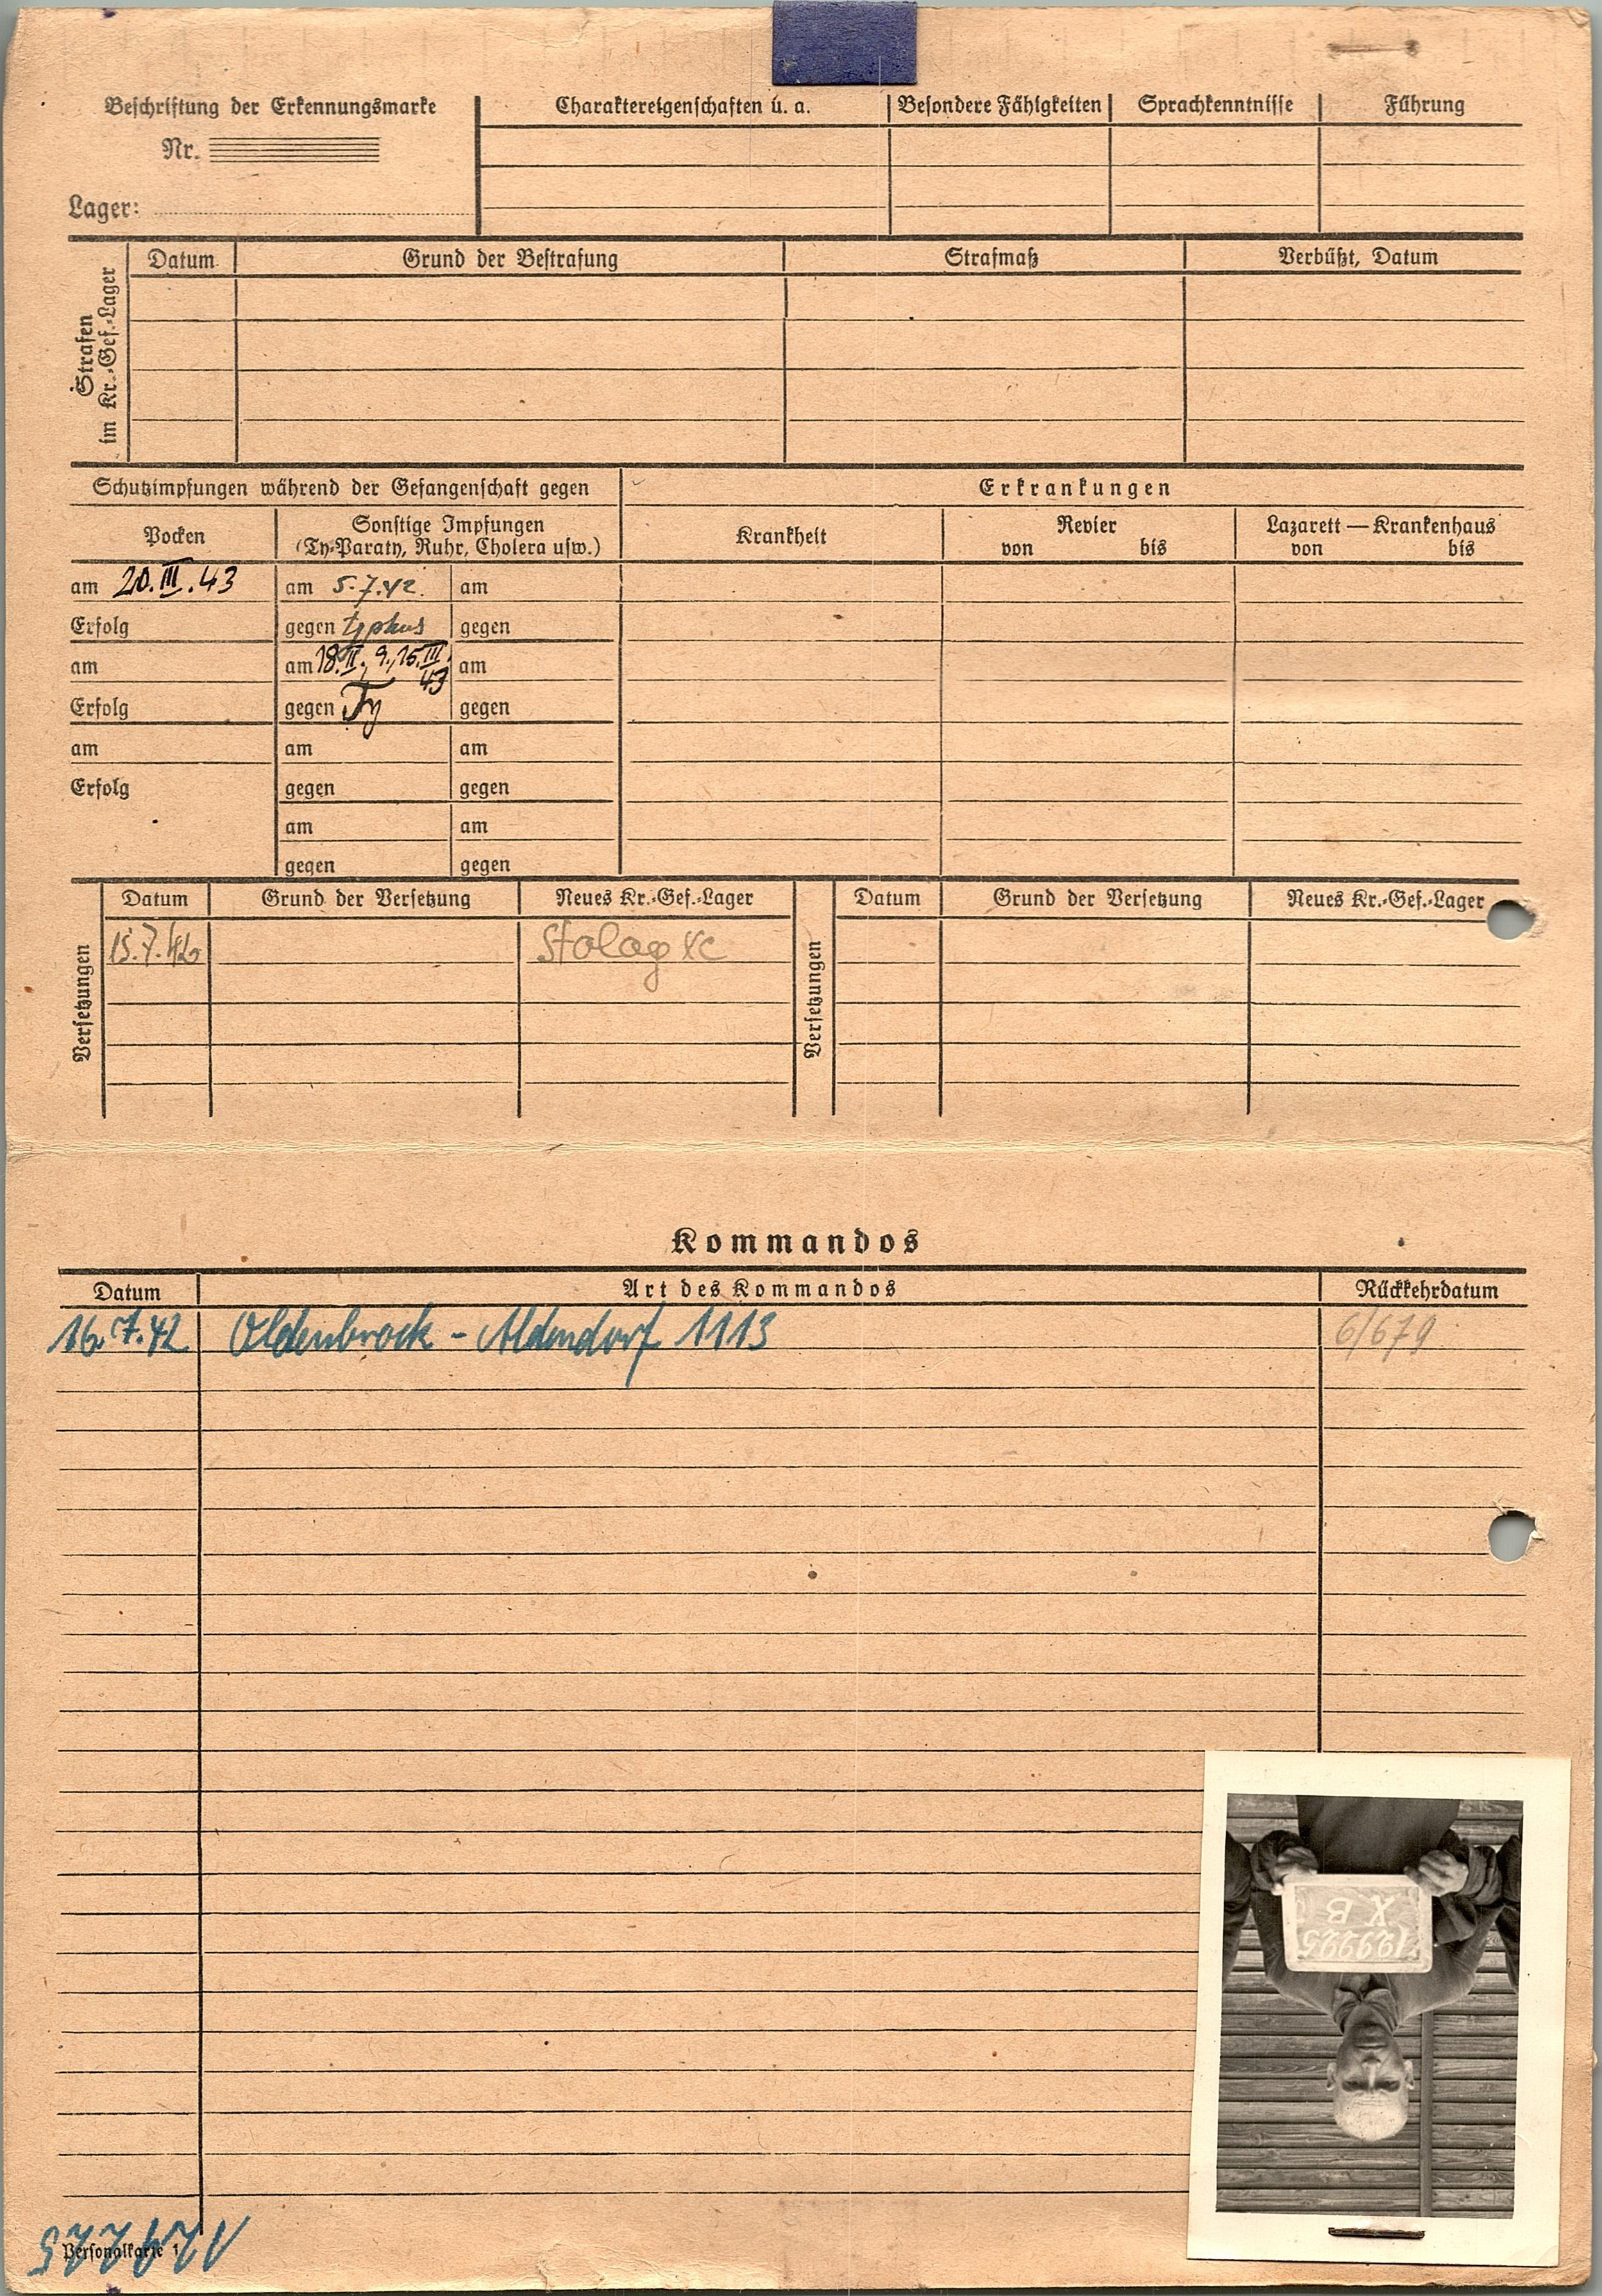 Beschriftung der Erkennungsmarke
Nr.
Lager:
Charaktereigenschaften u. a.
Besondere Fähigkeiten
Sprachkenntnisse
Führung
Strafen im Kr.-Gef.-Lager
Datum
Grund der Bestrafung
Strafmaß
Verbüßt, Datum
Schutzimpfungen während der Gefangenschaft gegen
Erkrankungen
Pocken
Sonstige Impfungen
(Ty-Paraty, Ruhr, Cholera usw.)
Krankheit
Revier
von bis
Lazarett — Krankenhaus
von bis
am 20.III.43
am 5.7.42.
am
Erfolg
gegen typhus
gegen
am
am 18.II., 9., 15.III. 43
am
Erfolg
gegen Ty
gegen
am
am
am
Erfolg
gegen
gegen
am
am
gegen
gegen
Versetzungen
Datum
Grund der Versetzung
Neues Kr.-Gef.-Lager
15.7.42
Stalag XC
Versetzungen
Datum
Grund der Versetzung
Neues Kr.-Gef.-Lager
Kommandos
Datum
Art des Kommandos
Rückkehrdatum
16.7.42
Oldenbrock - Altendorf 1113
6/679
129225
X B
Personalkarte 1
129225